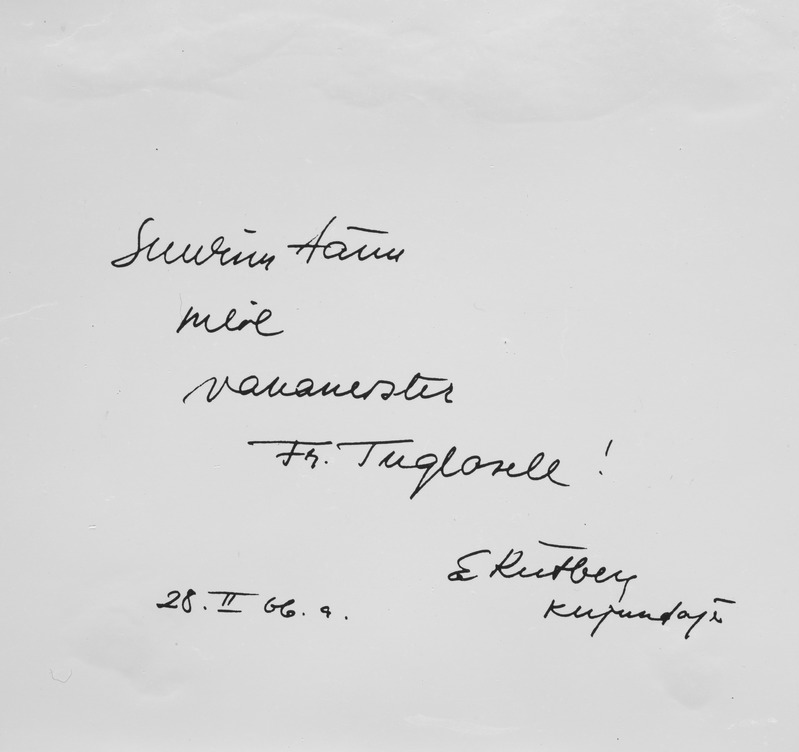 Suurim tänu
meie
vanameister
Fr. Tuglasele !
E Rütberg
kujundaja
28. II 66. a.